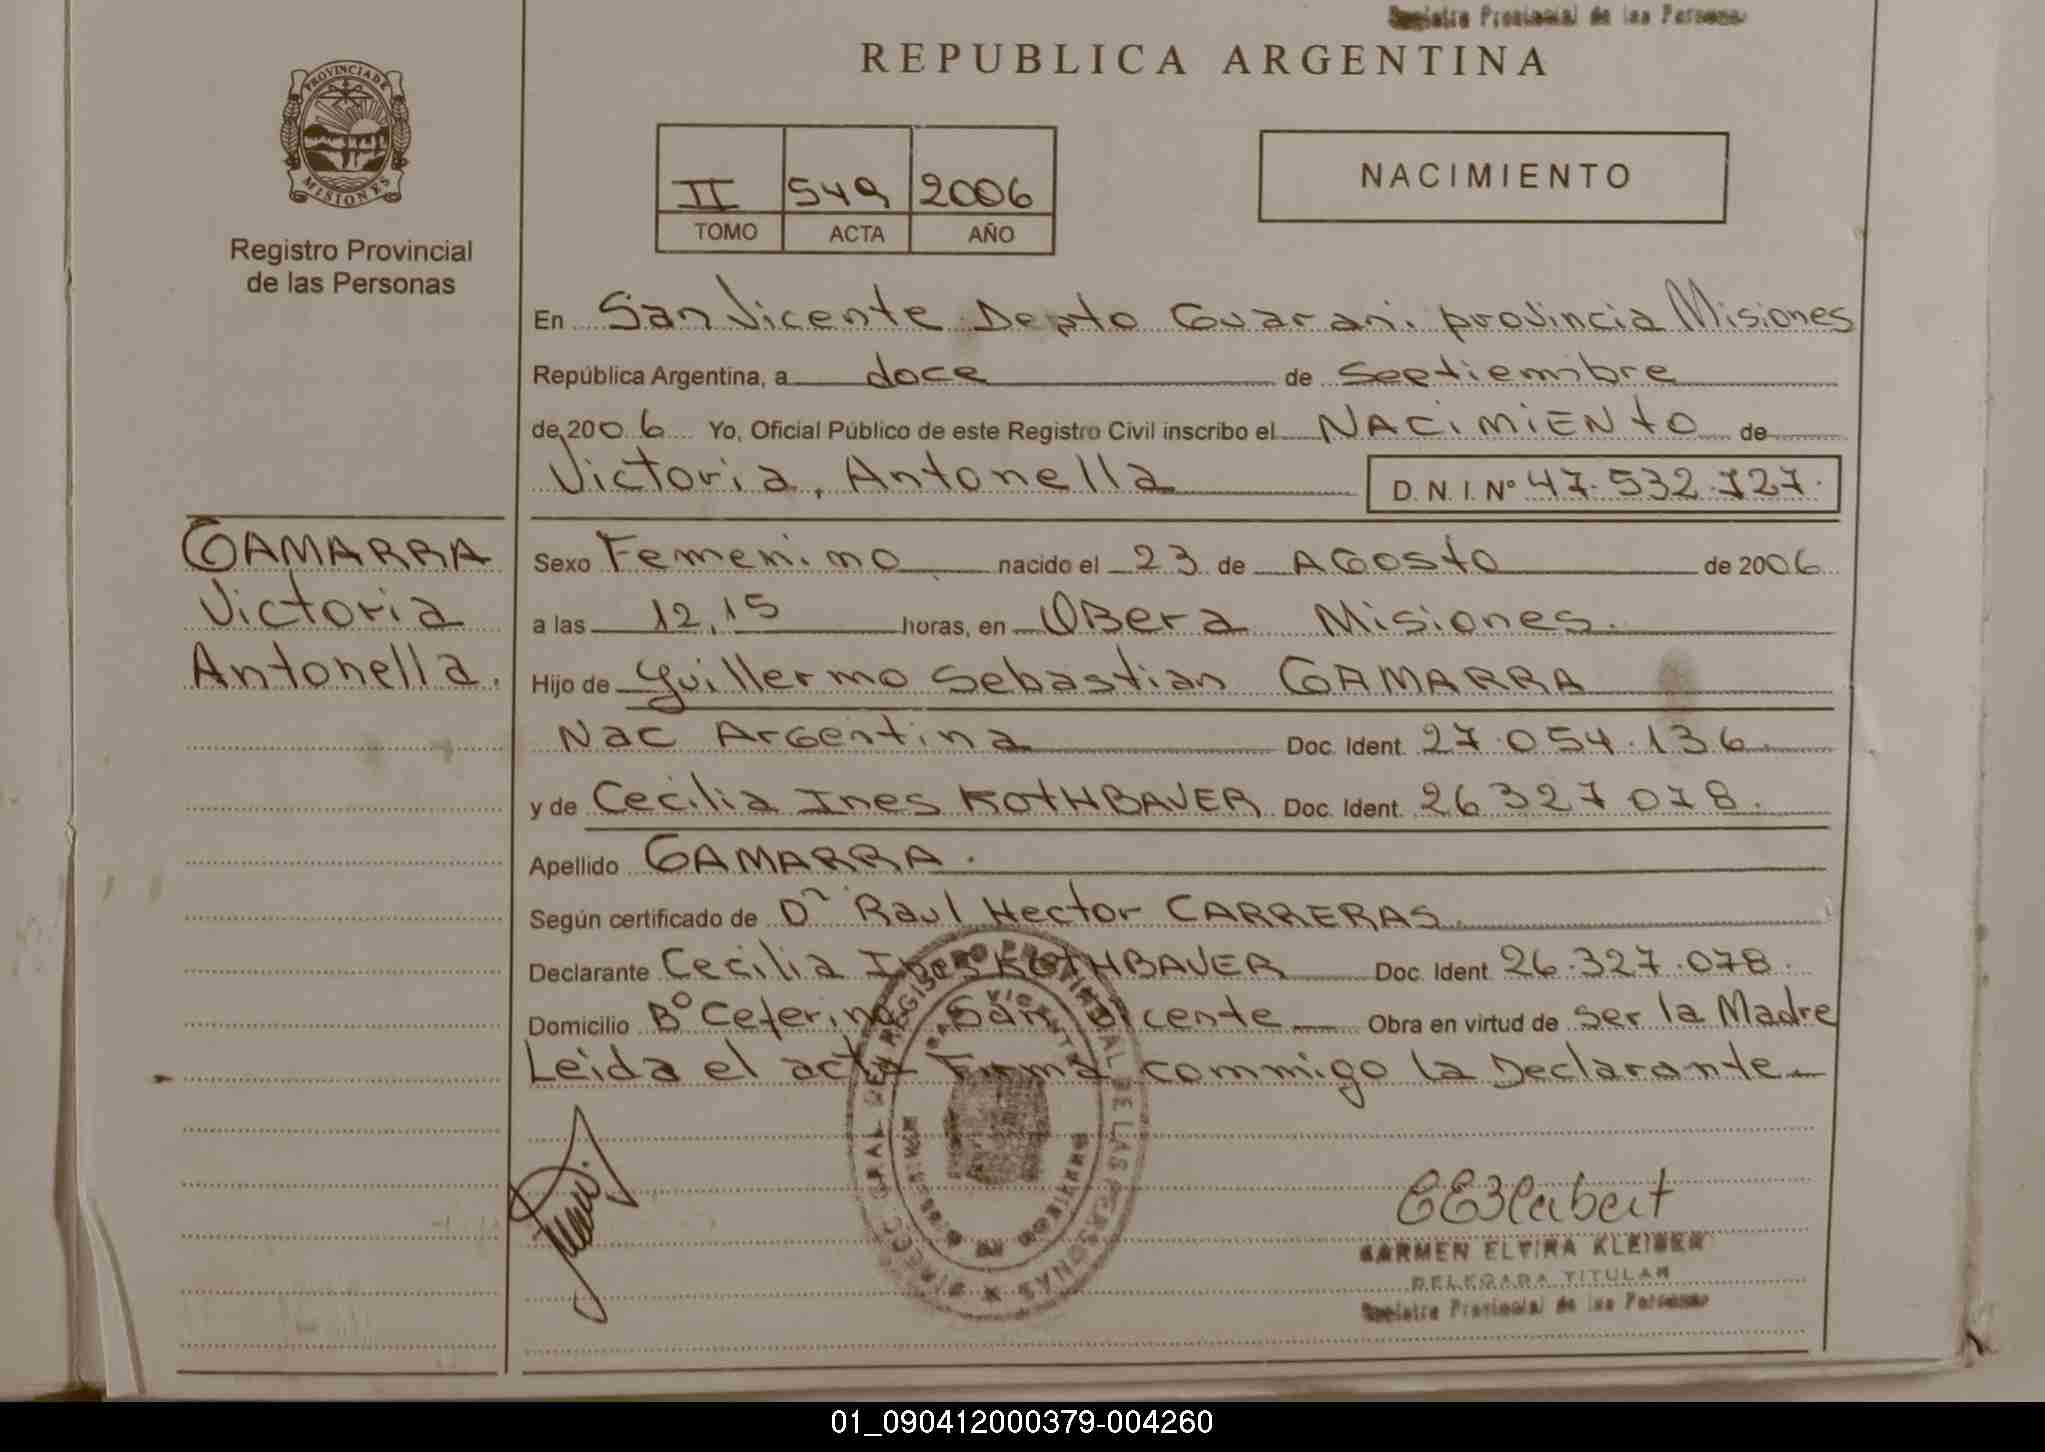 Registro Provincial de las Personas
REPUBLICA ARGENTINA
PROVINCIA DE
MISIONES
Registro Provincial
de las Personas
II 549 2006
TOMO ACTA AÑO
NACIMIENTO
En San Vicente Depto Guarani. provincia Misiones
República Argentina, a doce de Septiembre
de 2006 Yo, Oficial Público de este Registro Civil inscribo el NACIMIENTO de
Victoria, Antonella D. N. I. Nº 47.532.727.
GAMARRA
Victoria
Antonella.
Sexo Femenino nacido el 23 de AGosto de 2006
a las 12,15 horas, en OBera Misiones.
Hijo de Guillermo Sebastian GAMARRA
Nac Argentina Doc. Ident. 27.054.136
y de Cecilia Ines KOTHBAUER Doc. Ident. 26327078.
Apellido GAMARRA.
Según certificado de Dr Raul Hector CARRERAS.
Declarante Cecilia Ines KOTHBAUER Doc. Ident. 26.327.078.
Domicilio Bº Ceferino San Vicente Obra en virtud de ser la Madre
Leida el acta Firma commigo la Declarante
CARMEN ELVIRA
DELEGADA TITULAR
Registro Provincial de las Personas
01_090412000379-004260